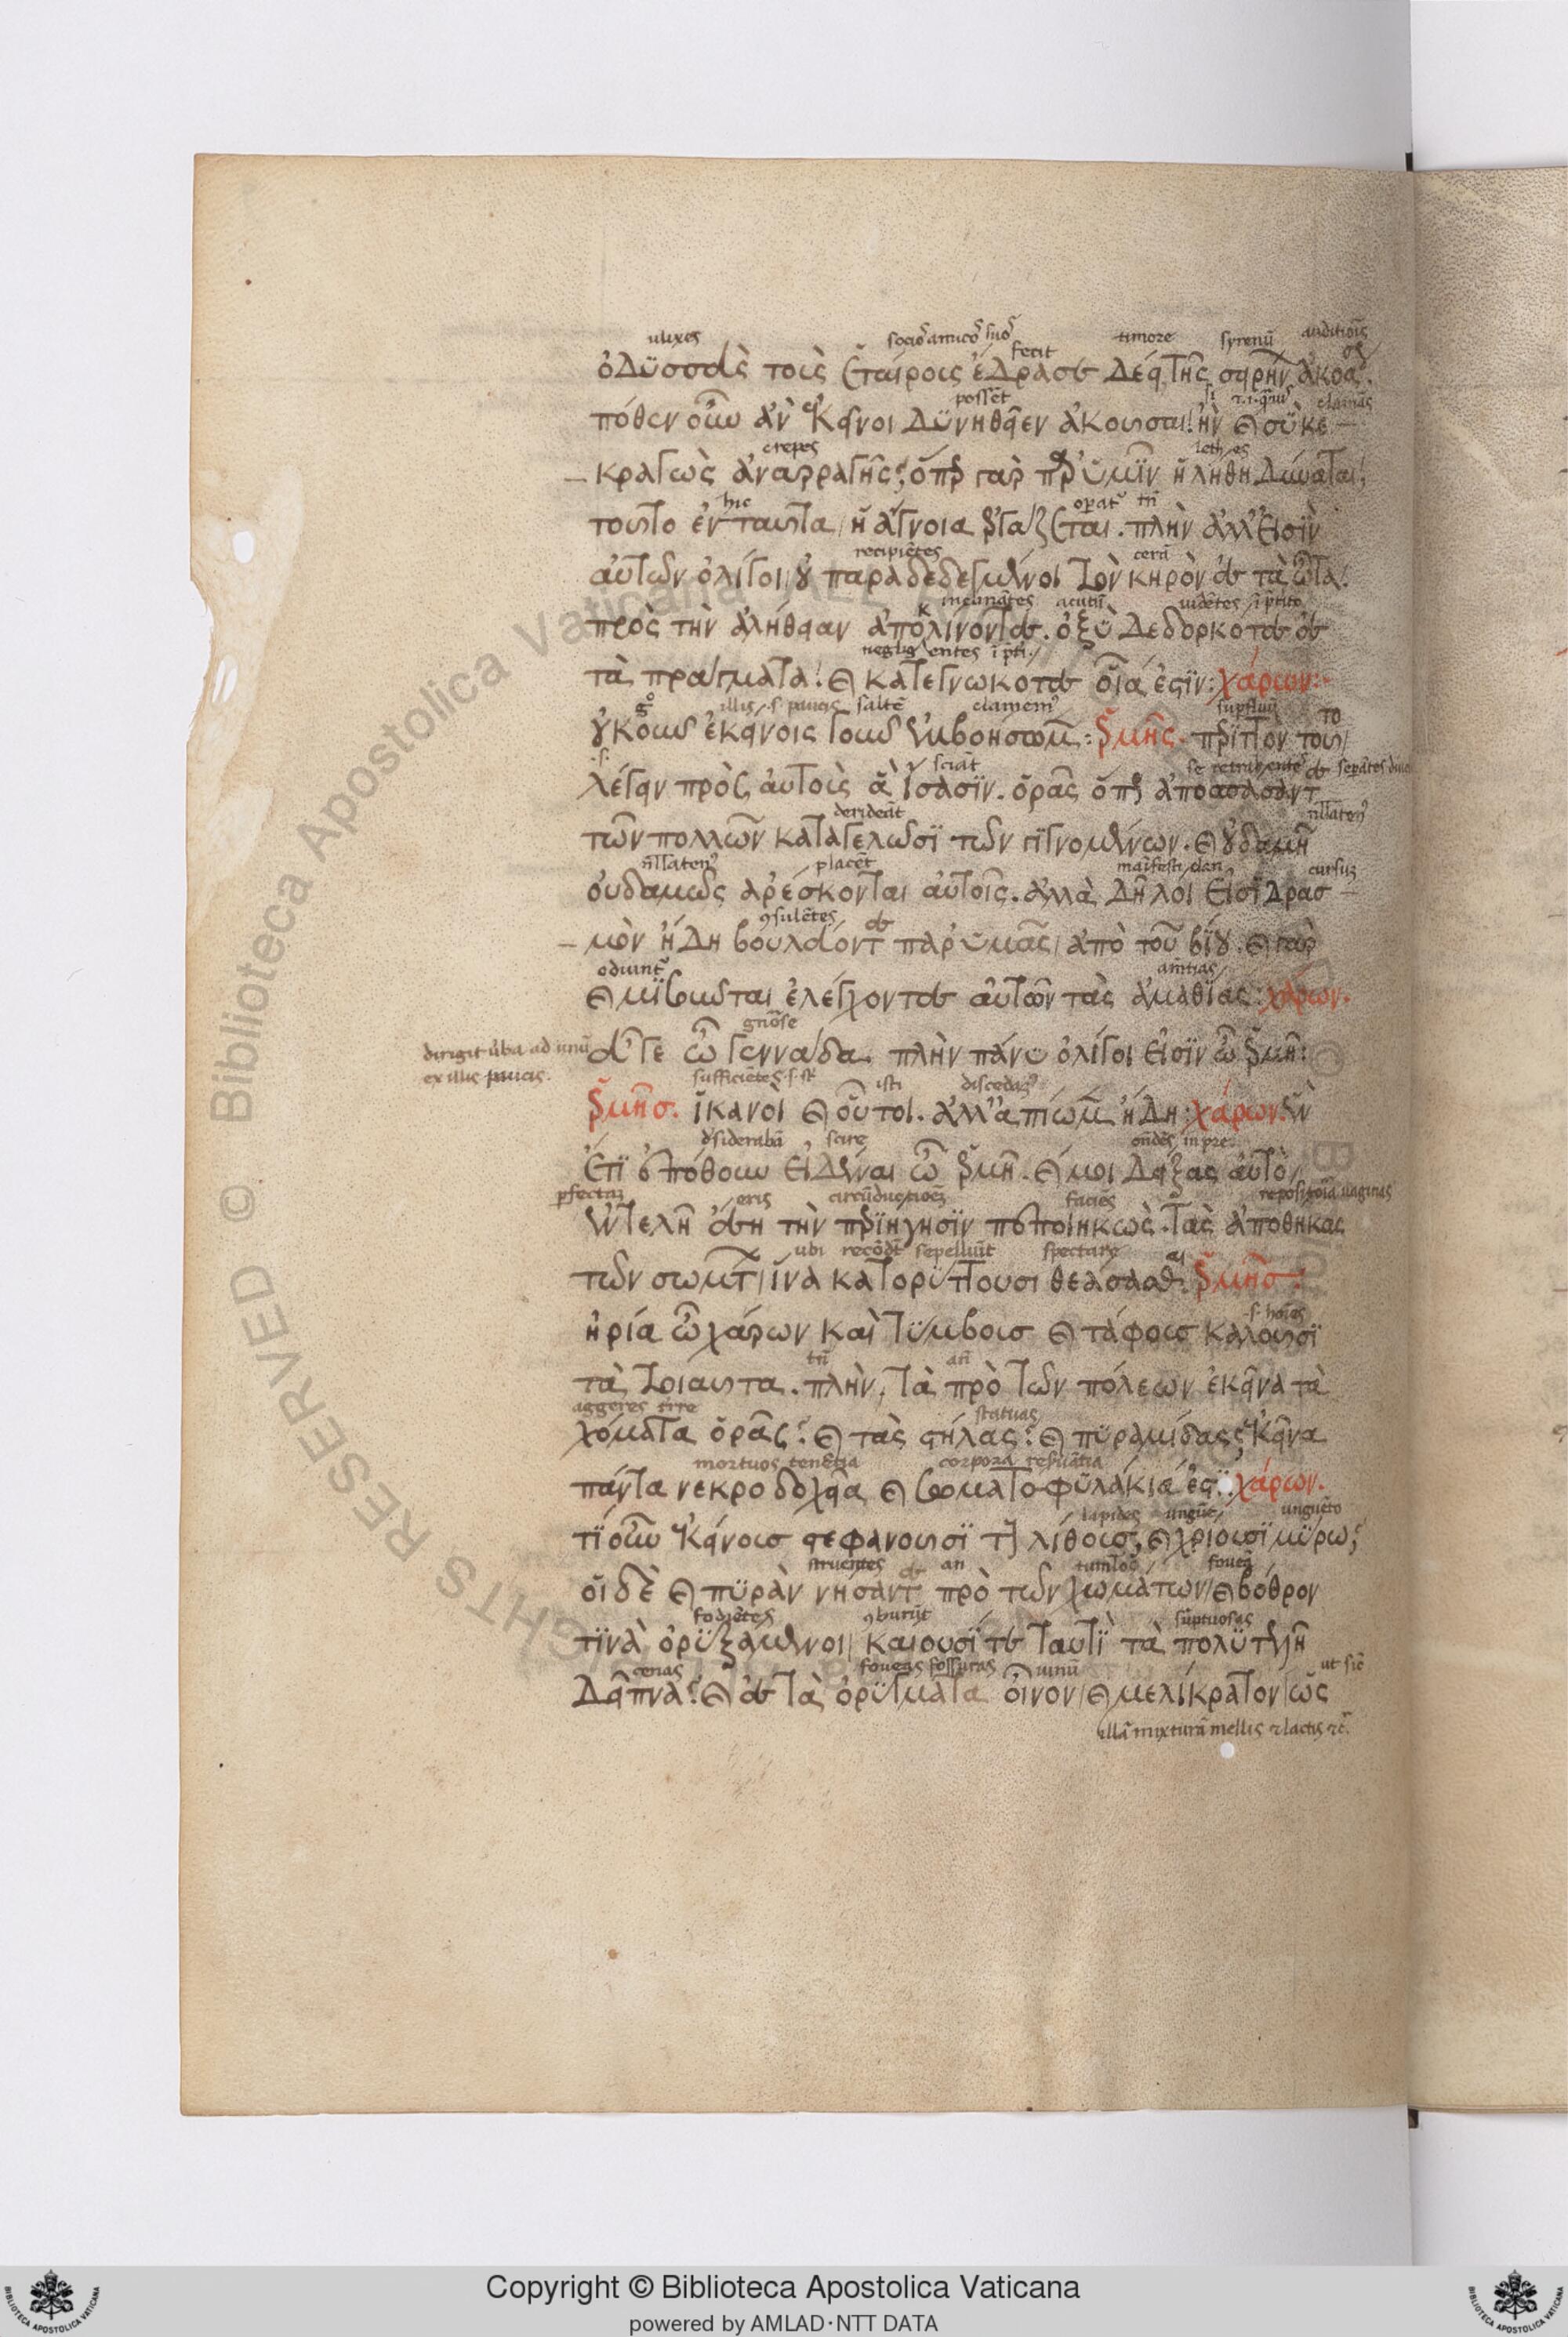 ulixes socios amicos suos fecit timore syrenum auditionis
ὀδυσσεὺς τοὺς ἑταίρους ἔδρασε δέει τῆς σειρήνων ἀκροάσεως.
possent si clamans
πόθεν οὖν ἂν ἐκεῖνοι δυνηθεῖεν ἀκοῦσαι! ἢν καὶ σὺ κε –
crepes lethes
– κραγὼς διαρραγῇς; ὅπερ γὰρ παρ' ὑμῖν ἡ λήθη δύναται,
hic operatur tamen
τοῦτο ἐνταῦθα ἡ ἄγνοια ἐργάζεται. πλὴν ἀλλ' εἰσὶν
recipientes ceram
αὐτῶν ὀλίγοι οὐ παραδεδεγμένοι τὸν κηρὸν ἐς τὰ ὦτα!
inclinantes acutum videntes
πρὸς τὴν ἀλήθειαν ἀποκλίνοντες. ὀξὺ δεδορκότες ἐς
τὰ πράγματα! καὶ κατεγνωκότες οἷά ἐστιν: χάρων:
illis .s. paucis saltem clamemus superfluum
οὐκοῦν ἐκείνοις γοῦν ἐμβοήσωμεν: ἑρμῆς. περιττὸν τοῦτο
sciant
λέγειν πρὸς αὐτοὺς ἃ ἴσασιν. ὁρᾷς ὅπως ἀποσπάσαντες
derident
τῶν πολλῶν καταγελῶσι τῶν γιγνομένων. καὶ οὐδαμῆ
placent cursum
οὐδαμῶς ἀρέσκονται αὐτοῖς. ἀλλὰ δῆλοί εἰσι δρασ –
consulentes
– μὸν ἤδη βουλεύοντες παρ' ὑμᾶς ἀπὸ τοῦ βίου. καὶ γὰρ
odiuntur
καὶ μισοῦνται ἐλέγχοντες αὐτῶν τὰς ἀμαθίας: χάρων.
dirigit verba ad unum
ex illis paucis.
εὖγε ὦ γεννάδα. πλὴν πάνυ ὀλίγοι εἰσὶν ὦ ἑρμῆ:
sufficientes .s. sunt isti discedamus
ἑρμῆς. ἱκανοὶ καὶ οὗτοι. ἀλλ' ἀπίωμεν ἤδη: χάρων. ἓν
desiderabam scire
ἔτι ἐπόθουν εἰδέναι ὦ ἑρμῆ. καί μοι δείξας αὐτὸ
perfectam eris faciens
ἐντελῆ ἔσῃ τὴν περιήγησιν πεποιηκώς. τὰς ἀποθήκας
ubi sepeliunt spectare
τῶν σωμάτων ἵνα κατορύττουσι θεάσασθαι. ἑρμῆς:
.s. homines
ἠρία ὦ χάρων καὶ τύμβους καὶ τάφους καλοῦσι
τὰ τοιαῦτα. πλὴν, τὰ πρὸ τῶν πόλεων ἐκεῖνα τὰ
aggeres terre statuas
χόματα ὁρᾷς; καὶ τὰς στήλας; καὶ πυραμίδας; ἐκεῖνα
mortuos tenentia corpora
πάντα νεκροδοχεῖα καὶ σωματοφυλάκιά ἐστι: χάρων.
lapides unguento
τί οὖν ἐκεῖνοις στεφανοῦσι τοὺς λίθους, καὶ χρίουσι μύρῳ;
struentes foveam
οἱ δὲ καὶ πυρὰν νήσαντες πρὸ τῶν χωμάτων καὶ βόθρον
fodientes comburunt sumptuosas
τινὰ ὀρυξάμενοι καίουσί τε ταυτὶ τὰ πολυτελῆ
cenas foveas fossuras vinum
δεῖπνα; καὶ ἐς τὰ ὀρύγματα οἶνον καὶ μελίκρατον ὡς
illam mixturam mellis et lactis etc.